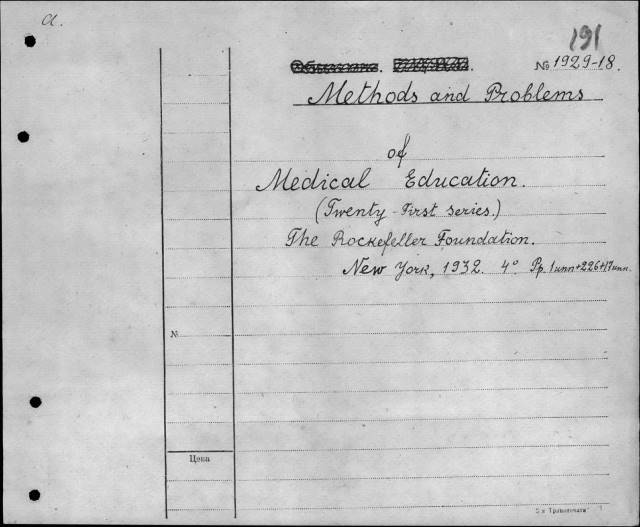 a.
191
№ 1929-18.
Methods and Problems
of
Medical Education.
(Twenty-First series.)
The Rockefeller Foundation.
New York, 1932. 4° Pp. 1unn+226+17unn.
№
Цена